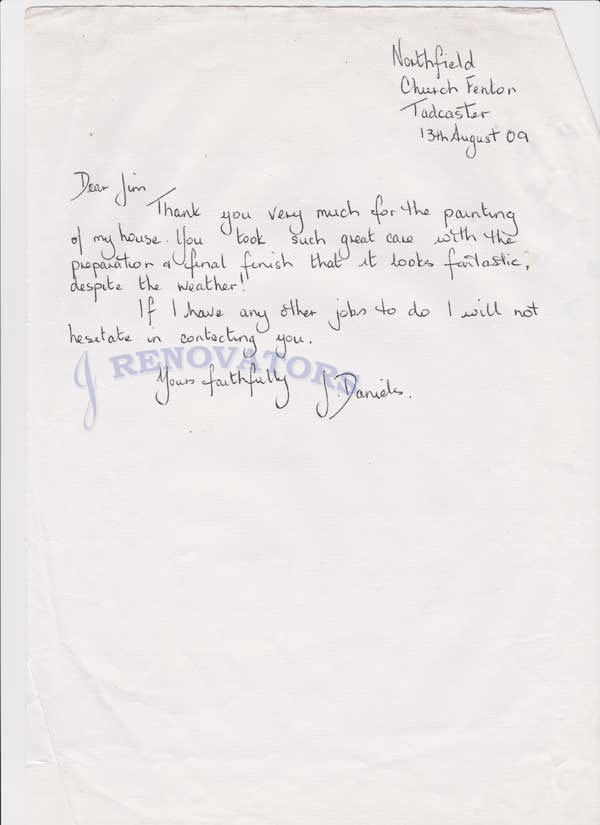 Northfield
Church Fenton
Tadcaster
13th August 09
Dear Jim
Thank you very much for the painting
of my house. You took such great care with the
preparation & final finish that it looks fantastic,
despite the weather!!
If I have any other jobs to do I will not
hesitate in contacting you.
J RENOVATORS
Yours faithfully J. Daniels.